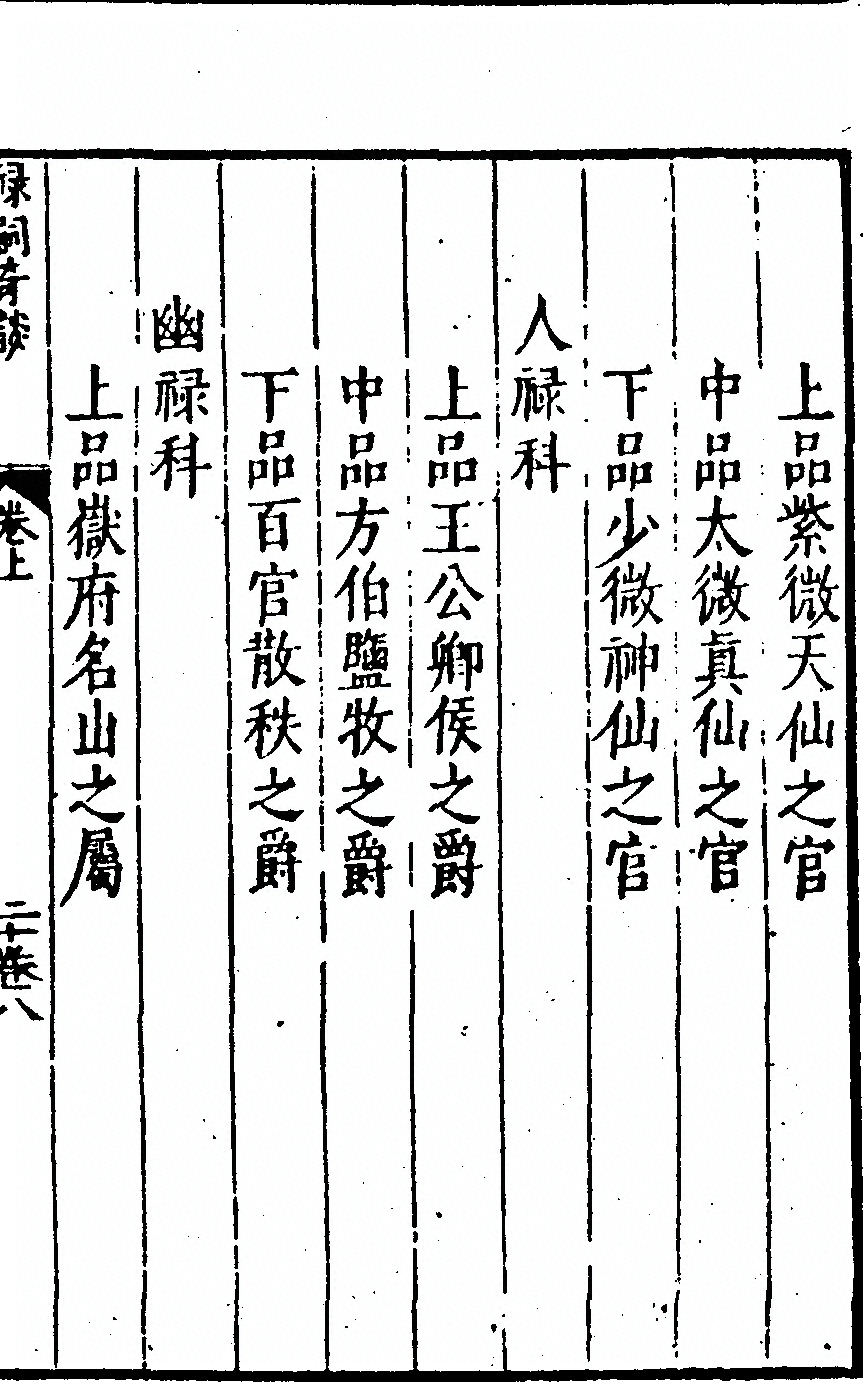 上品紫微天仙之官
中品太微眞仙之官
下品少微神仙之官
人祿科
上品王公卿侯之爵
中品方伯鹽牧之爵
下品百官散秩之爵
幽祿科
上品嶽府名山之屬
祿嗣奇談
卷上